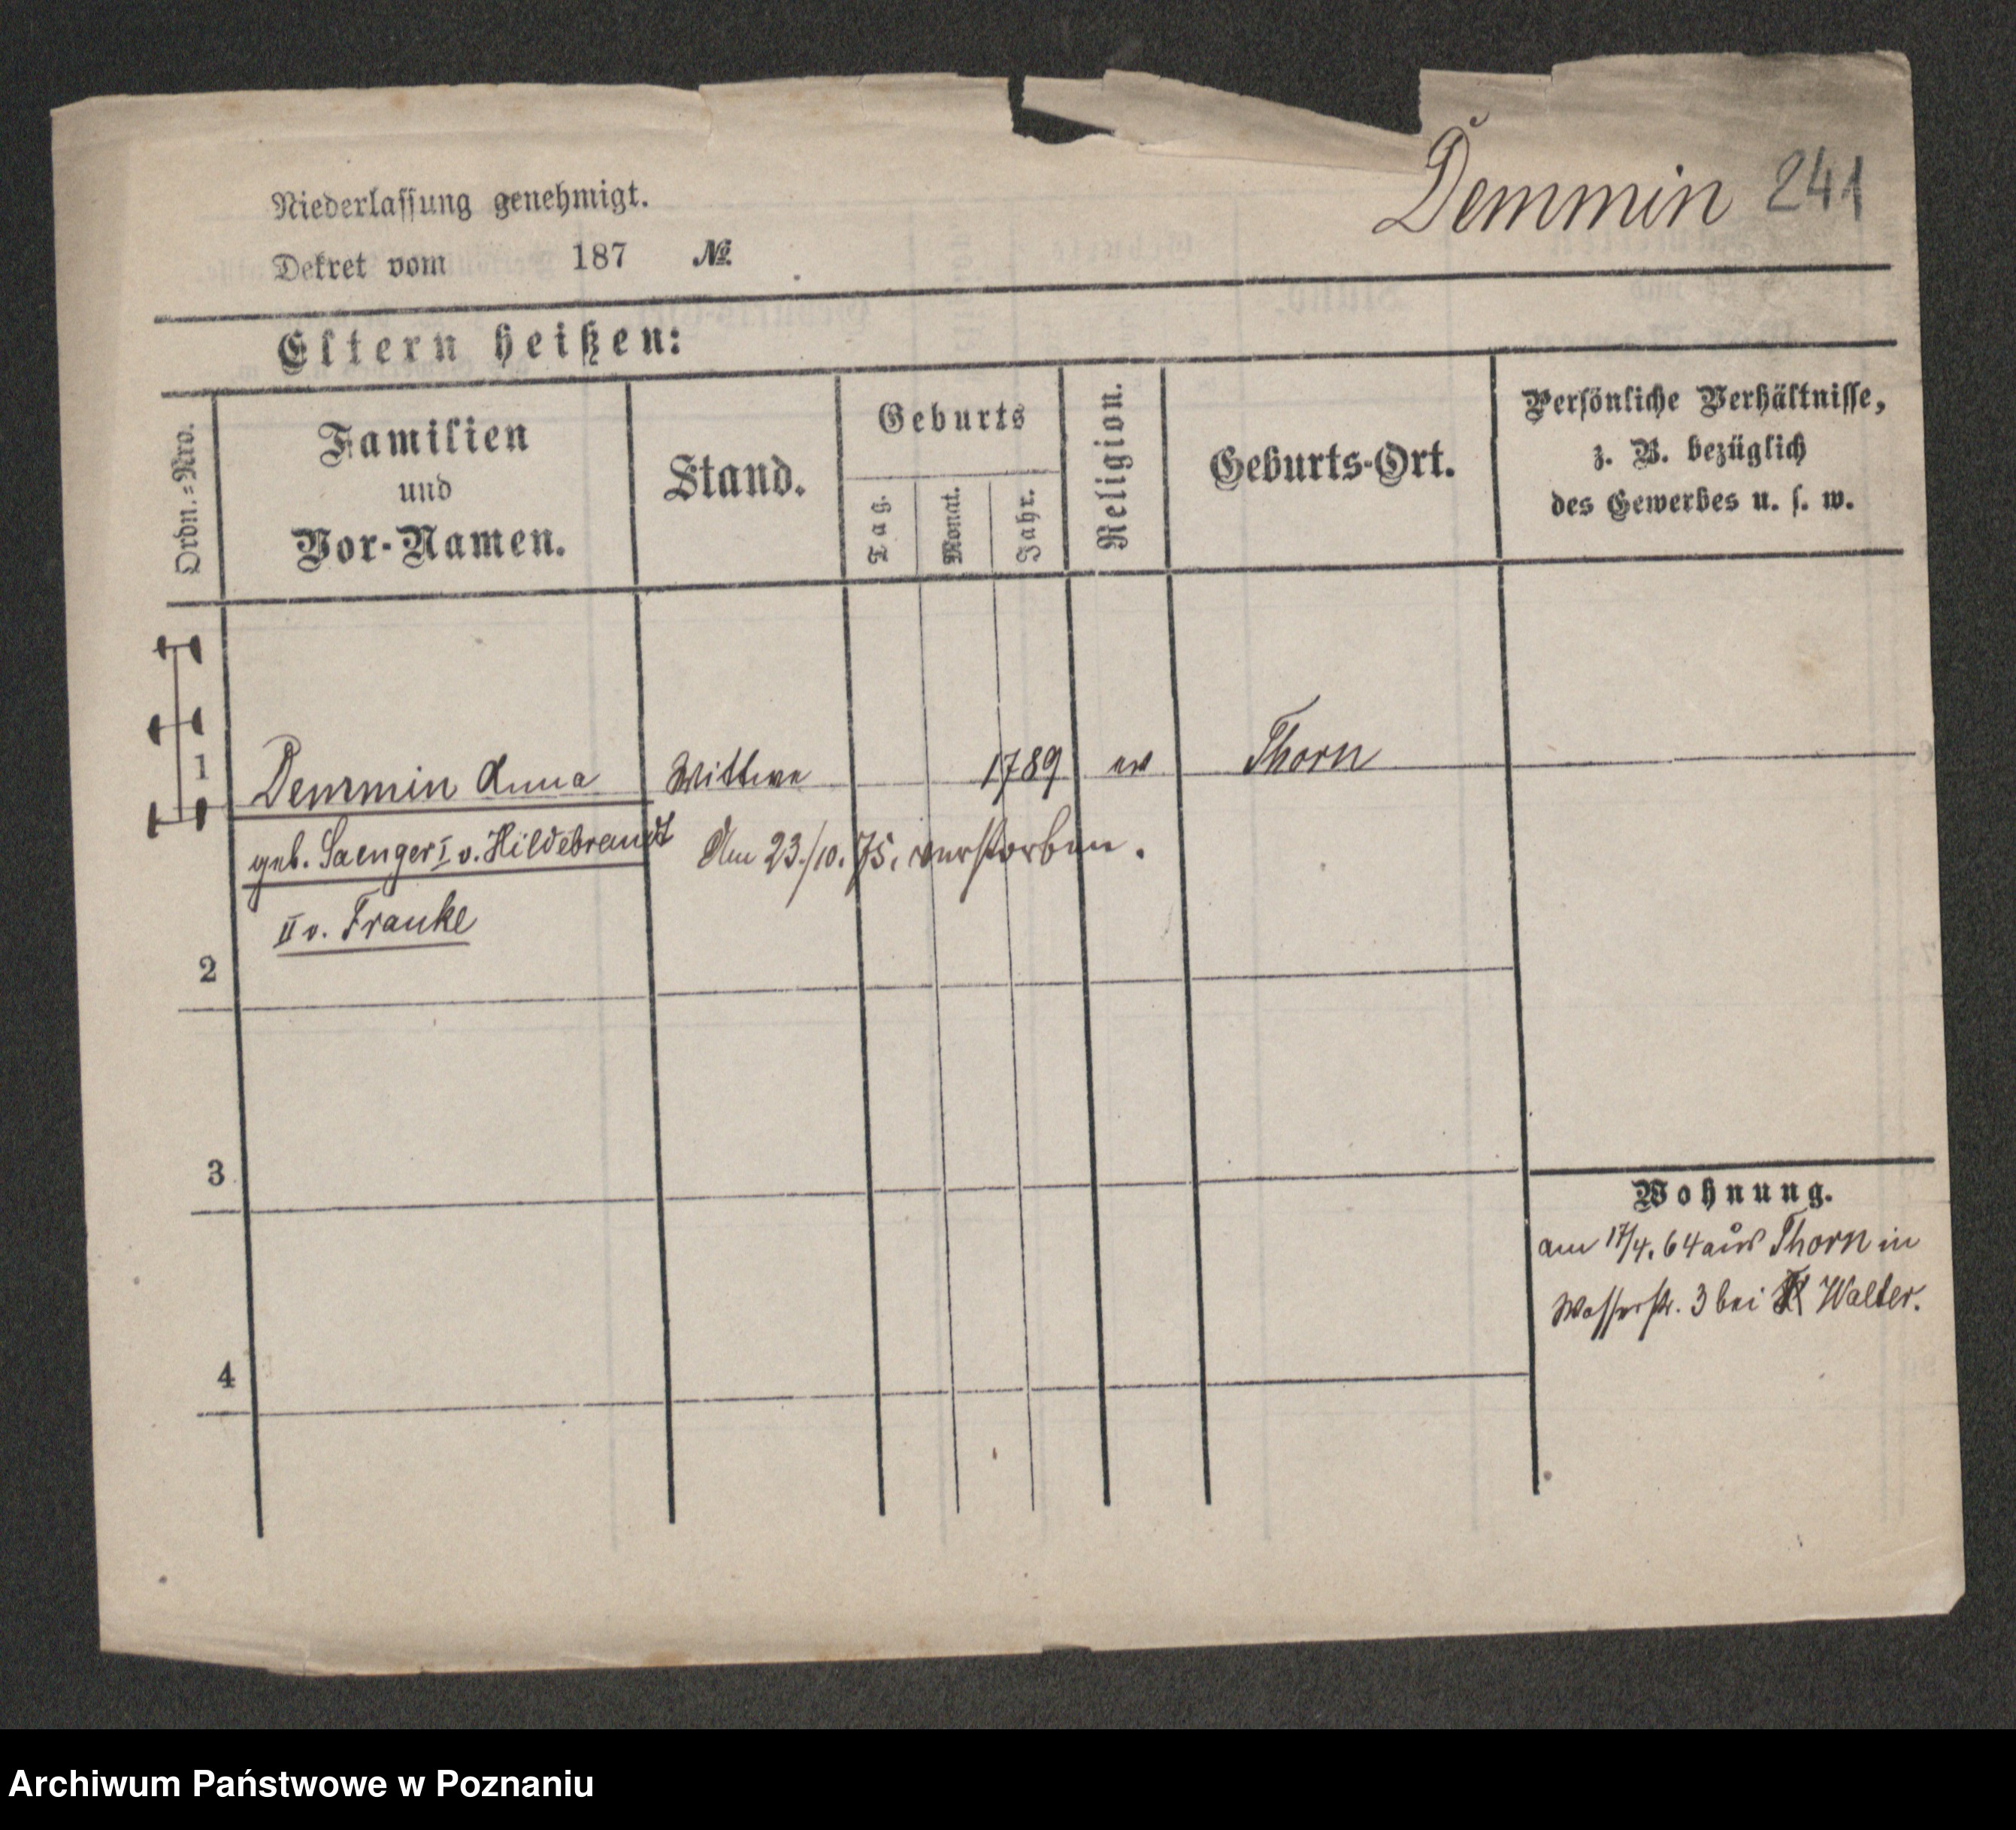 Demmin 241
Niederlassung genehmigt.
Dekret vom 187 №
Eltern heißen:
Ordn.=Nro.
Familien
und
Vor-Namen.
Stand.
Geburts
Tag.
Monat.
Jahr.
Religion.
Geburts-Ort.
Persönliche Verhältnisse,
z. B. bezüglich
des Gewerbes u. s. w.
1 Demmin Anna Wittwe 1789 ev Thorn
geb. Saenger I v. Hildebrandt Am 23./10. 75. verstorben.
II v. Franke
2
3
Wohnung.
am 17/4. 64 aus Thorn in
Wasserstr. 3 bei Walter.
4
Archiwum Państwowe w Poznaniu